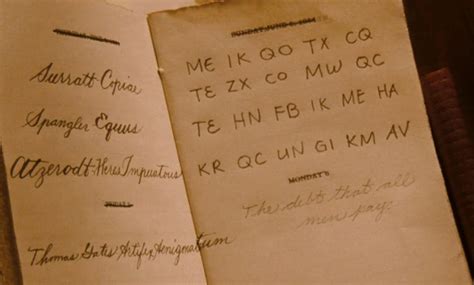 Surratt Copiae
Spangler Equus
Atzerodt-Heres
Thomas Gates Artifex Aenigmatum
ME IK QO TX CQ
TE ZX CO MW QC
TE HN FB IK ME HA
KR QC UN GI KM AV
The debt that all
men pay.